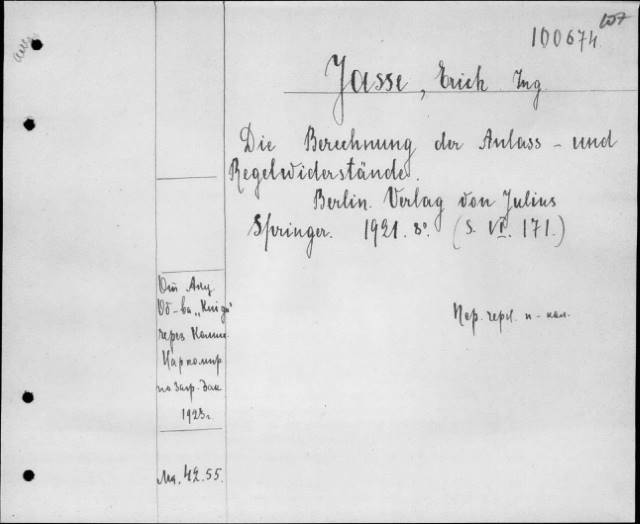 100674
Jasse, Erich Ing
Die Berechnung der Anlass - und
Regelwiderstände.
Berlin. Verlag von Julius
Springer. 1921. 8°. (S. VI. 171.)
От Акц.
Об-ва „Книга"
через Комис.
Наркомпр
по загр. Зак
1923г.
42.55.